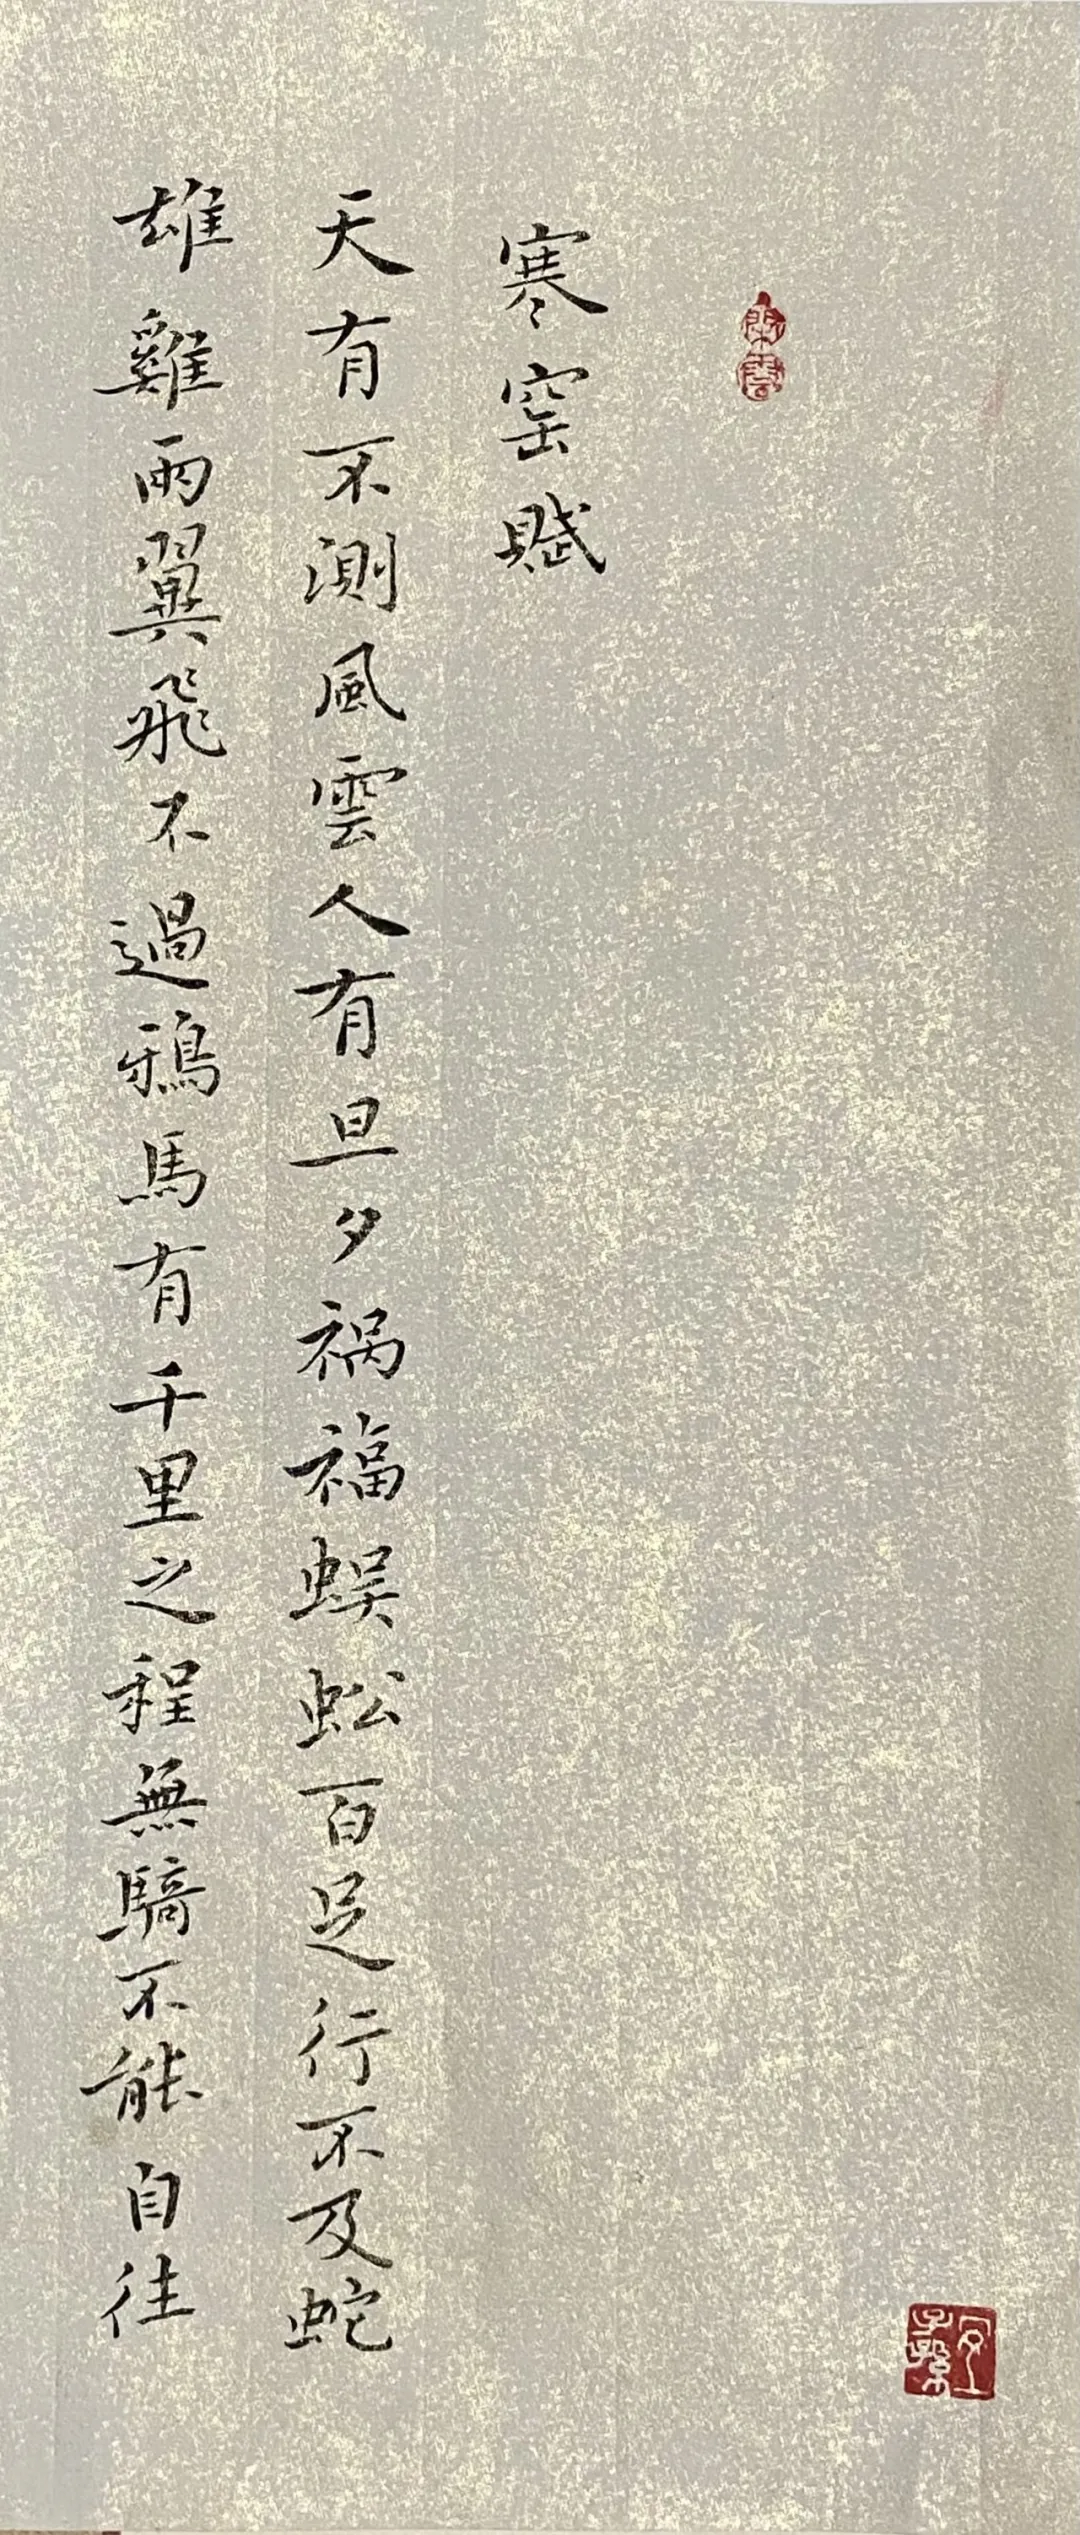 寒窑賦
天有不測風雲人有旦夕祸福蜈蚣百足行不及蛇
雄雞兩翼飛不過鴉馬有千里之程無騎不能自往